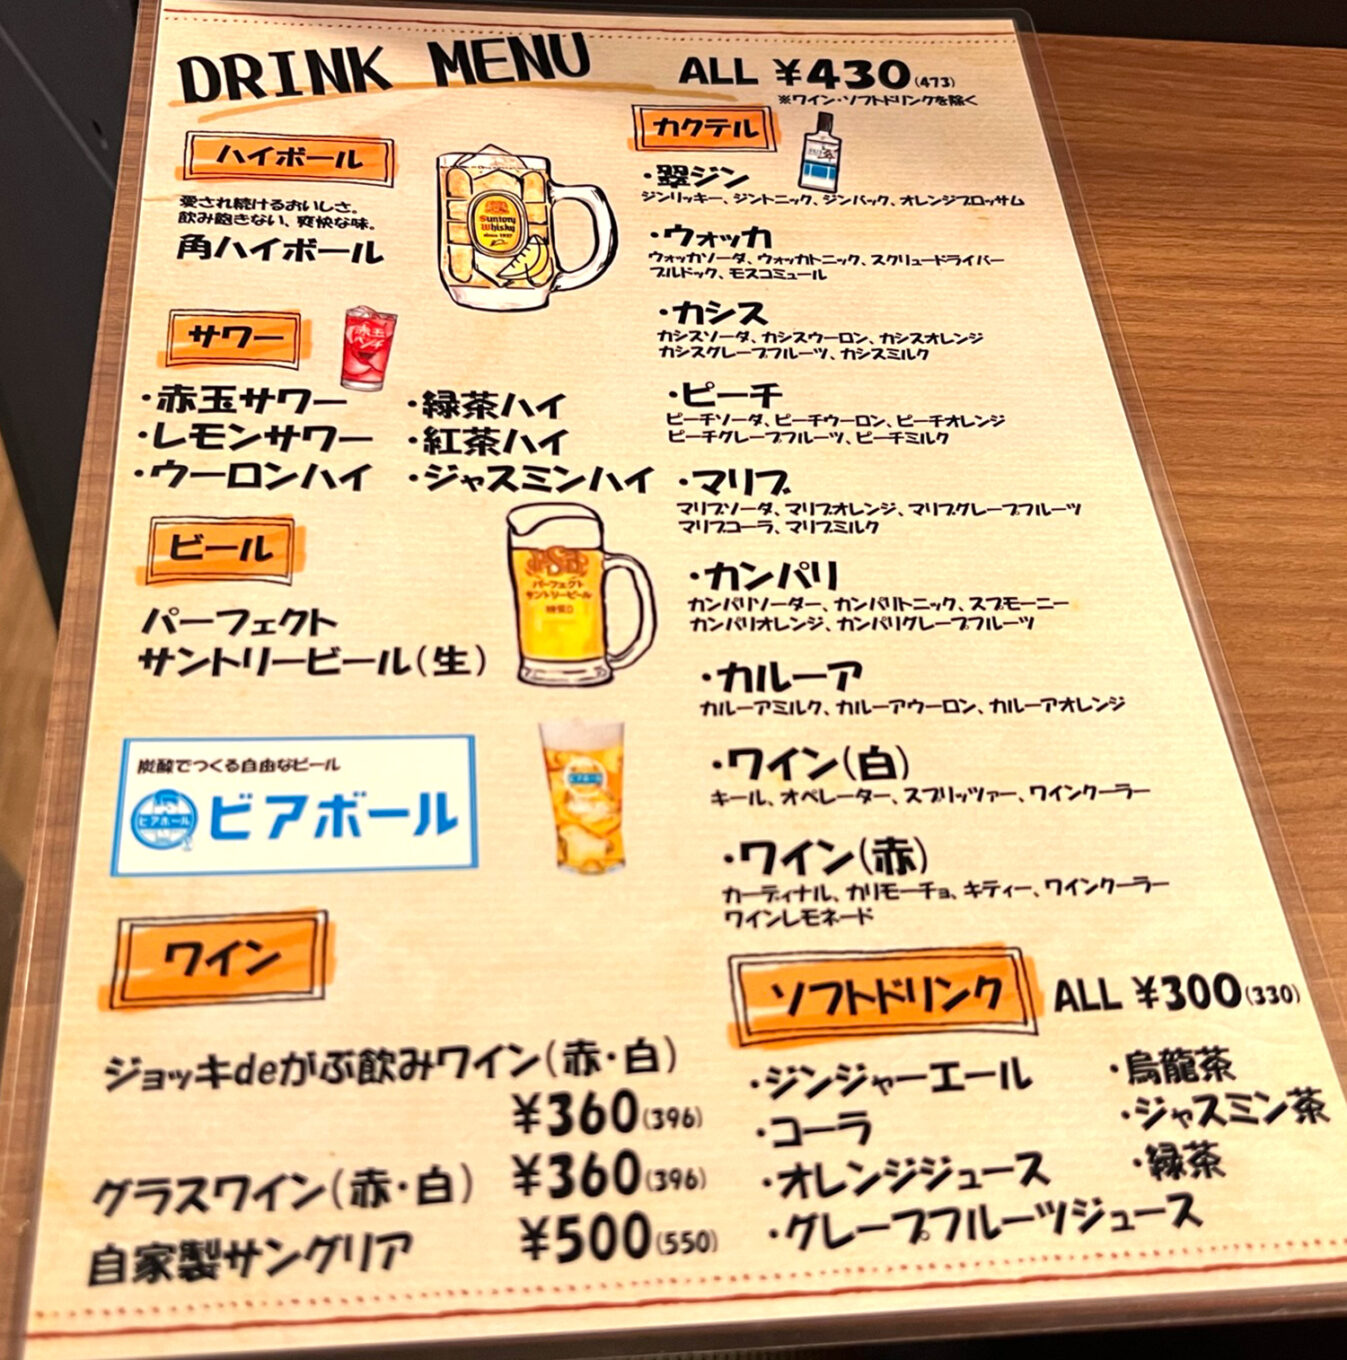 DRINK MENU
ALL ¥430(473)
※ワイン・ソフトドリンクを除く
ハイボール
愛され続けるおいしさ。
飲み飽きない、爽快な味。
角ハイボール
Suntory
Whisky
since 1937
サワー
赤玉
パンチ
・赤玉サワー
・レモンサワー
・ウーロンハイ
・緑茶ハイ
・紅茶ハイ
・ジャスミンハイ
ビール
パーフェクト
サントリービール(生)
パーフェクト
サントリービール
炭酸でつくる自由なビール
ビアボール
ビアボール
ビアボール
ワイン
ジョッキdeがぶ飲みワイン(赤・白)
¥360(396)
グラスワイン(赤・白) ¥360(396)
自家製サングリア ¥500(550)
カクテル
・翠ジン
ジンリッキー、ジントニック、ジンバック、オレンジブロッサム
・ウォッカ
ウォッカソーダ、ウォッカトニック、スクリュードライバー
ブルドック、モスコミュール
・カシス
カシスソーダ、カシスウーロン、カシスオレンジ
カシスグレープフルーツ、カシスミルク
・ピーチ
ピーチソーダ、ピーチウーロン、ピーチオレンジ
ピーチグレープフルーツ、ピーチミルク
・マリブ
マリブソーダ、マリブオレンジ、マリブグレープフルーツ
マリブコーラ、マリブミルク
・カンパリ
カンパリソーダー、カンパリトニック、スプモーニー
カンパリオレンジ、カンパリグレープフルーツ
・カルーア
カルーアミルク、カルーアウーロン、カルーアオレンジ
・ワイン(白)
キール、オペレーター、スプリッツァー、ワインクーラー
・ワイン(赤)
カーディナル、カリモーチョ、キティー、ワインクーラー
ワインレモネード
ソフトドリンク
ALL ¥300(330)
・ジンジャーエール
・コーラ
・オレンジジュース
・グレープフルーツジュース
・烏龍茶
・ジャスミン茶
・緑茶